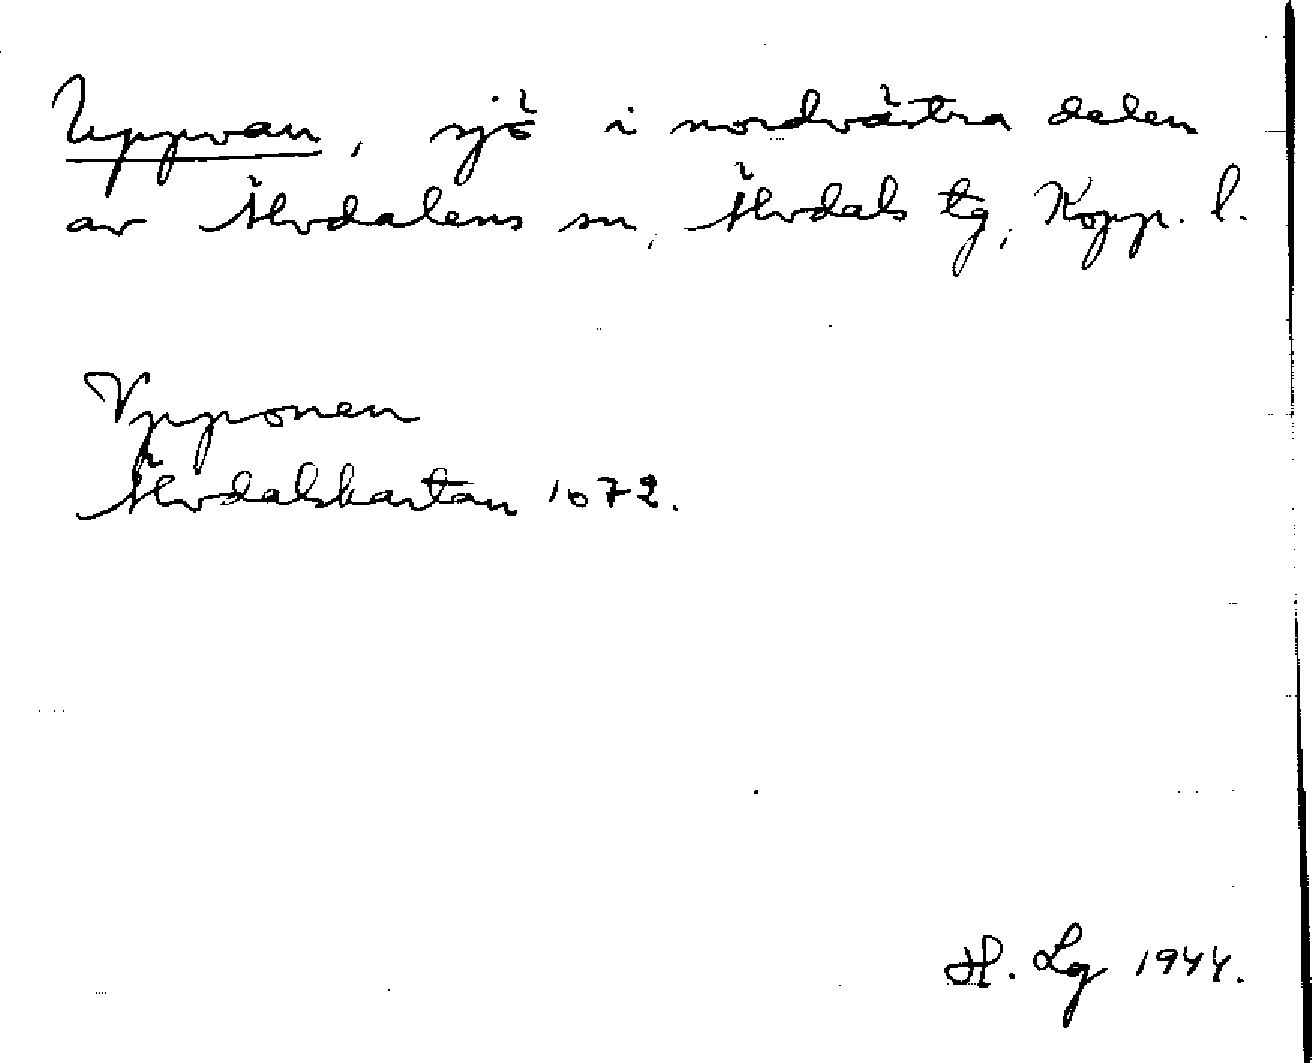 Uppvan, sjö i nordvästra delen
av Älvdalens sn, Älvdals tg, Kopp. l.
Vpponen
Älvdalskartan 1672.
H. Lg 1944.